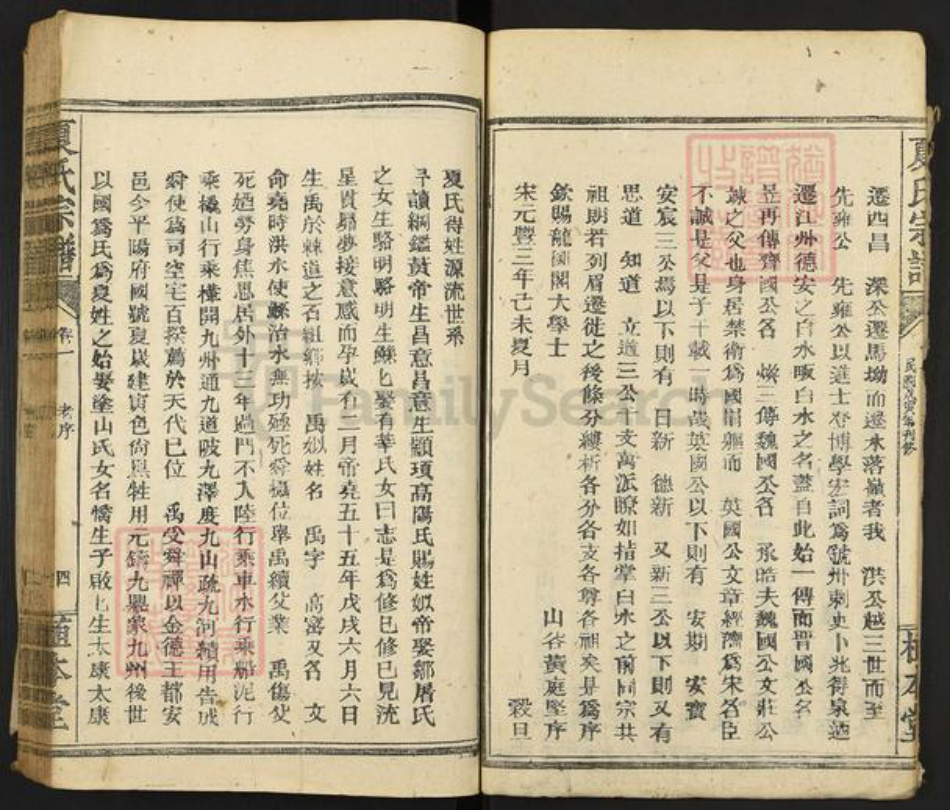 夏氏宗譜
民國戊寅年刊修
植本堂
遷西昌 深公遷馬坳而遷木落嶺者我 洪公越三世而至
先雍公 先雍公以進士登博學宏詞為號州刺史卜兆得泉遒
遷江州德安之白水畈白水之名蓋自此始一傳而晉國公名
昱再傳齊國公名 三傳魏國公名 承皓夫魏國公文莊公
竦之父也身居禁衛為國捐軀而 英國公文章經濟為宋名臣
不誠是父是子千載一時哉英國公以下則有 安期 安寶
安宸三公焉以下則有 日新 德新 又新三公以下則又有
思道 知道 立道三公千支萬派瞭如指掌白水之前同宗共
祖朗若列眉遷徙之後條分縷析各分各支各尊各祖矣是為序
欽賜龍圖閣大學士 山谷黃庭堅序
宋元豐三年己未夏月 穀旦
夏氏得姓源流世系
寻讀綱鑑黃帝生昌意昌意生顓頊高陽氏賜姓姒帝娶鄒屠氏
之女生駱明駱明生鯀鯀娶有莘氏女曰志是為修巳修巳見流
星貫昴夢接意感而孕歲有二月帝堯五十五年戊戌六月六日
生禹於棘道之石紐鄉按 禹姒姓名 禹字 高密又名 文
命堯時洪水使鯀治水無功殛死舜攝位舉禹續父業 禹傷父
死廼勞身焦思居外十三年過門不入陸行乘車水行乘船泥行
乘橇山行乘檋開九州通九道陂九澤度九山疏九河績用告成
舜使為司空宅百揆薦於天代巳位 禹受舜禪以金德王都安
邑今平陽府國號夏歲建寅色尚黑牲用元鑄九鼎象九州後世
以國為氏為夏姓之始娶塗山氏女名憍生子啟匕生太康太康
夏氏宗譜
卷一
老序
四
植本堂